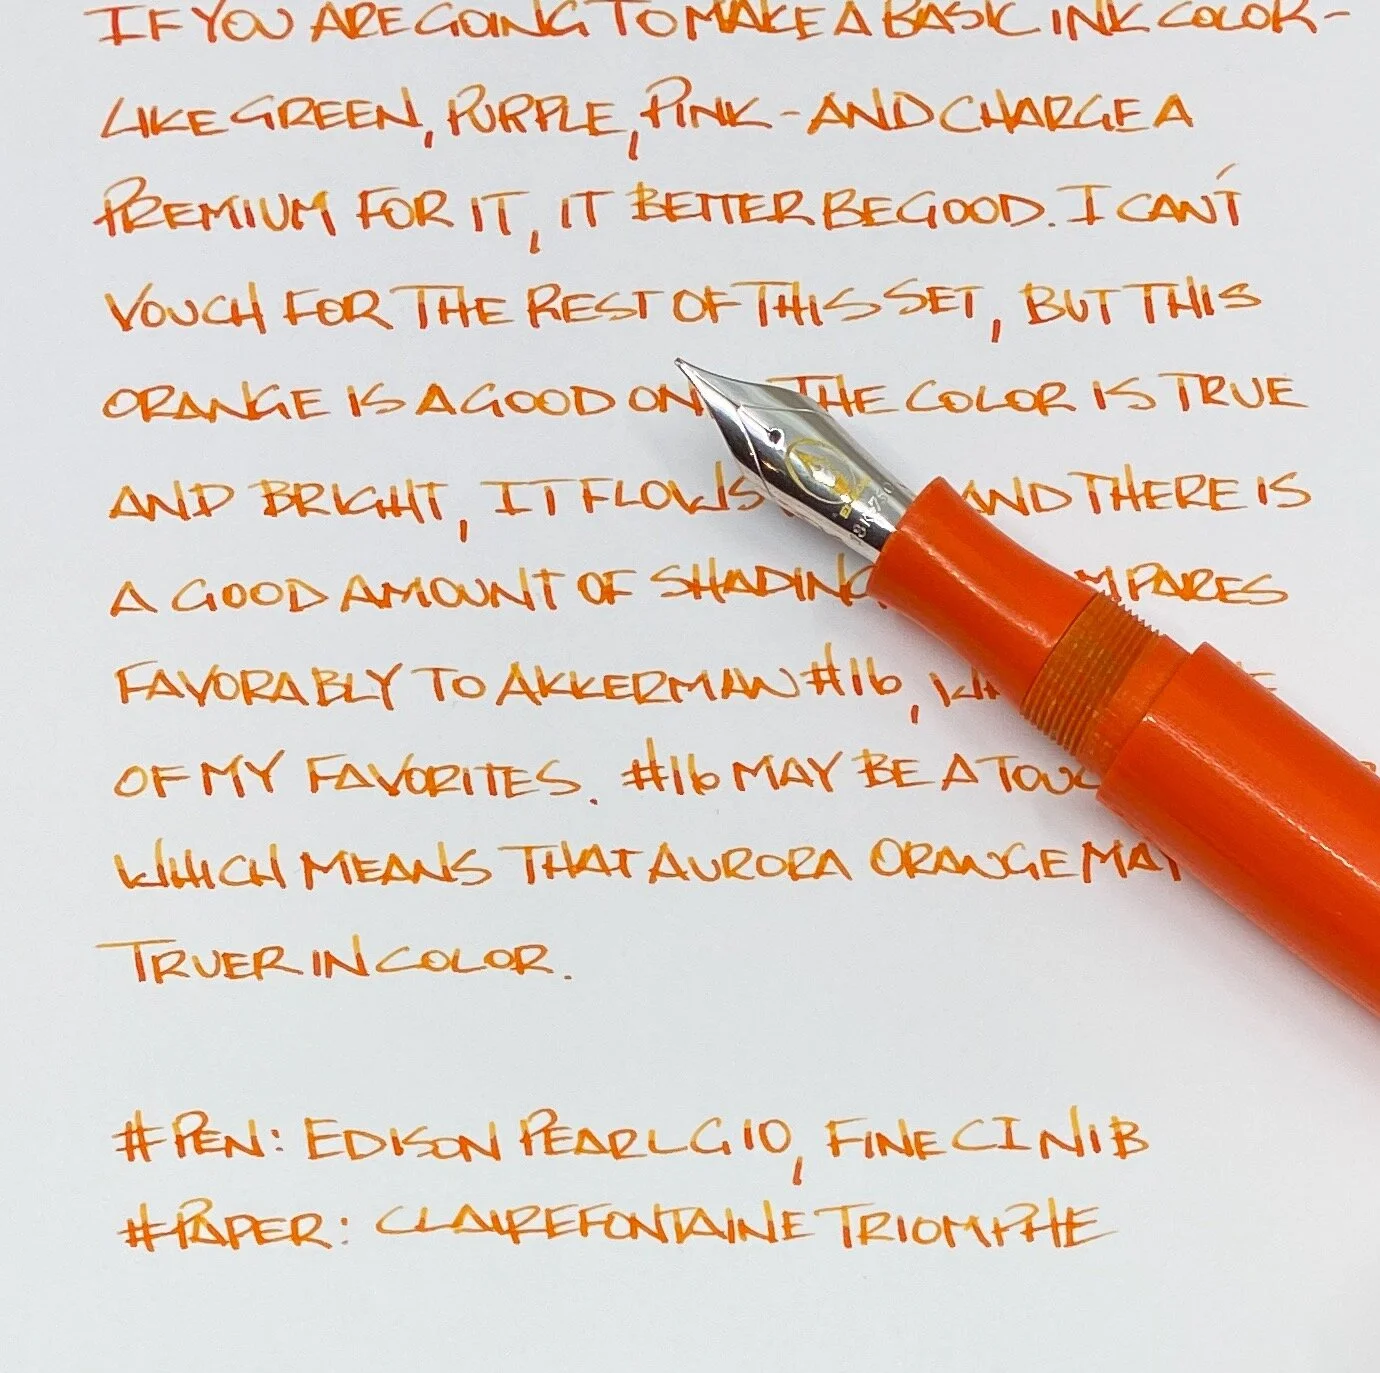 IF YOU ARE GOING TO MAKE A BASIC INK COLOR-
LIKE GREEN, PURPLE, PINK - AND CHARGE A
PREMIUM FOR IT, IT BETTER BE GOOD. I CAN'T
VOUCH FOR THE REST OF THIS SET, BUT THIS
ORANGE IS A GOOD THE COLOR IS TRUE
AND BRIGHT, IT FLOWS AND THERE IS
A GOOD AMOUNT OF SHADING
FAVORABLY TO AKKERMAN #16,
OF MY FAVORITES. #16 MAY BE A
WHICH MEANS THAT AURORA ORANGE MAY
TRUER IN COLOR.
#PEN: EDISON PEARL G10, FINE CI NIB
#PAPER: CLAIREFONTAINE TRIOMPHE
18K 750